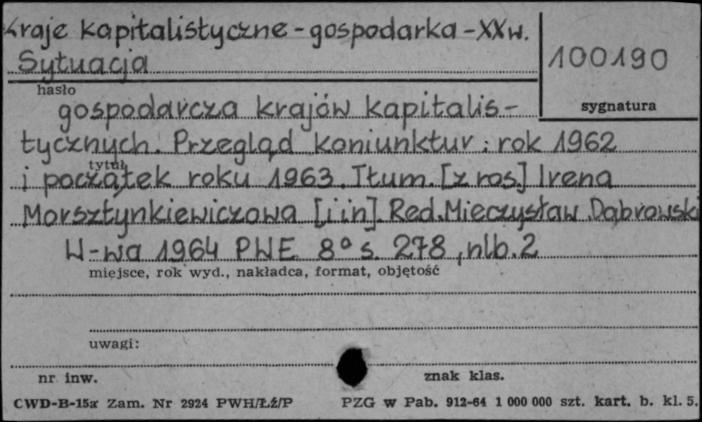 Kraje kapitalistyczne - gospodarka - XXw.
Sytuacja
100190
hasło
sygnatura
gospodarcza krajów kapitalis-
tycznych. Przegląd koniunktur : rok 1962
tytuł
i początek roku 1963. Tłum. [z ros.] Irena
Morsztynkiewiczowa [i in]. Red. Mieczysław Dąbrowski
W-wa 1964 PWE 8° s. 278, nlb. 2
miejsce, rok wyd., nakładca, format, objętość
uwagi:
nr inw.
znak klas.
CWD-B-15a Zam. Nr 2924 PWH/Łź/P
PZG w Pab. 912-64 1 000 000 szt. kart. b. kl. 5.